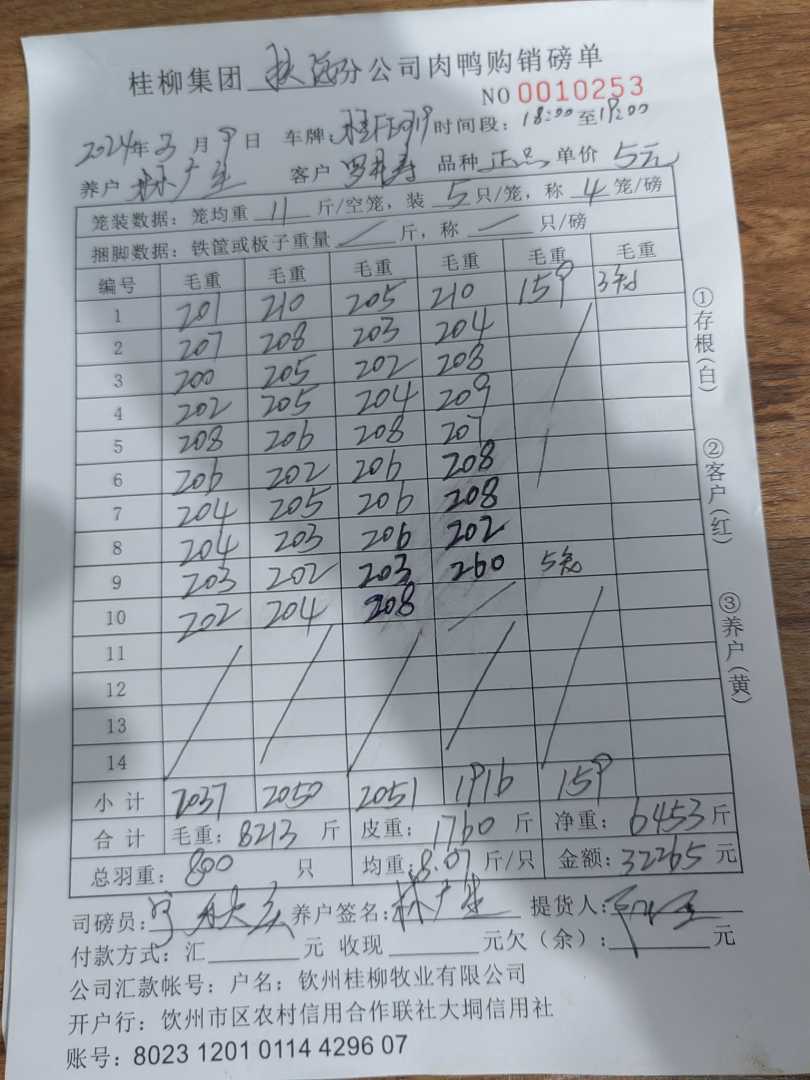 桂柳集团 分公司肉鸭购销磅单
NO 0010253
2024年3月9日 车牌: 时间段: 18:00至19:00
养户 林广生 客户 罗 寿 品种 正品 单价 5元
笼装数据: 笼均重 11 斤/空笼, 装 5 只/笼, 称 4 笼/磅
捆脚数据: 铁筐或板子重量 / 斤, 称 / 只/磅
编号 毛重 毛重 毛重 毛重 毛重 毛重
1 201 210 205 210 159 3
2 207 208 203 204
3 200 205 202 208
4 202 205 204 209
5 208 206 208 207
6 206 202 206 208
7 204 205 206 208
8 204 203 206 202
9 203 202 203 260 5
10 202 204 208
11
12
13
14
小计 2037 2050 2051 1916 159
合计 毛重: 8213 斤 皮重: 1760 斤 净重: 6453 斤
总羽重: 800 只 均重: 8.07 斤/只 金额: 32265 元
司磅员: 养户签名: 林广生 提货人:
付款方式: 汇 元 收现 元欠(余): 元
公司汇款帐号: 户名: 钦州桂柳牧业有限公司
开户行: 饮州市区农村信用合作联社大垌信用社
账号: 8023 1201 0114 4296 07
①存根(白)
②客户(红)
③养户(黄)